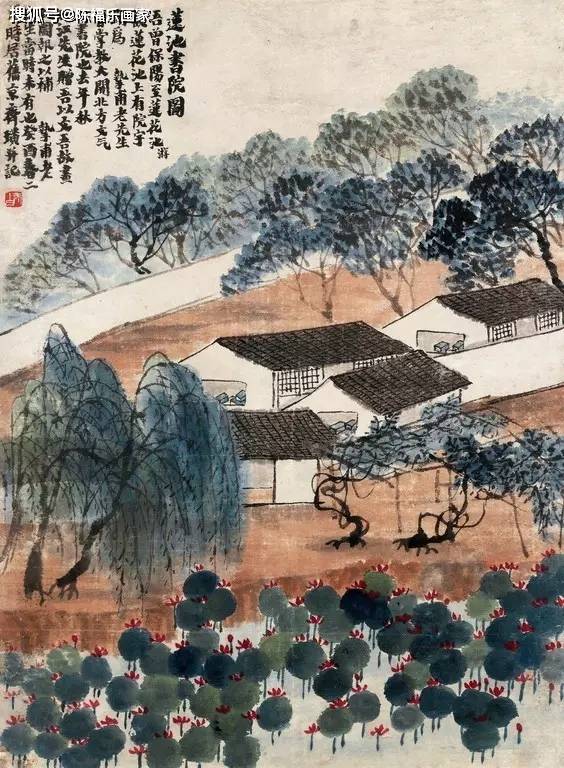 搜狐号@陈福乐画家
蓮池書院圖
吾曾保陽至蓮花池游
蓮花池上有院宇
為 摯甫老先生
曾掌教大開北方文氣
書院也去年秋
北江先生贈吾以文吾故畫
圖報之以補 摯甫老
先生當時未有也癸酉春二
月時居舊京齊璜并記